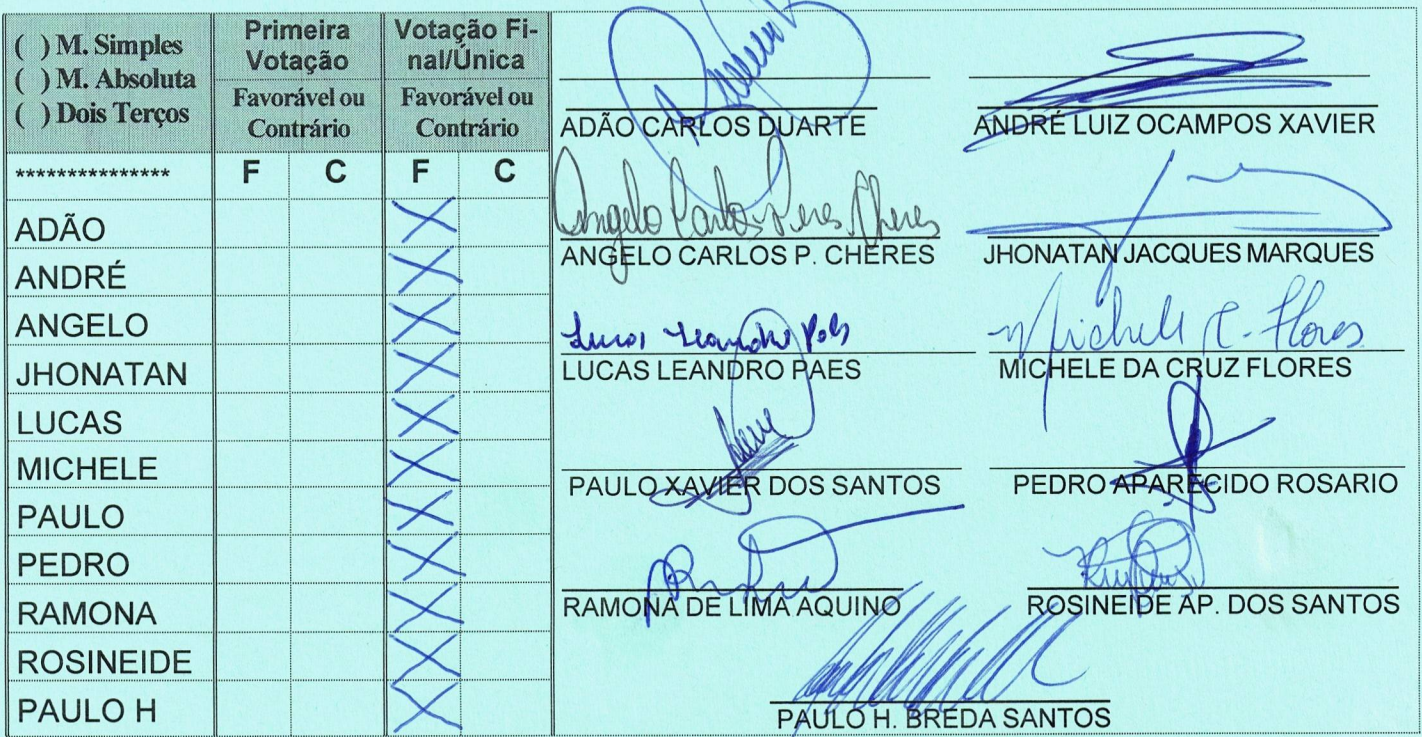 ( ) M. Simples
( ) M. Absoluta
( ) Dois Terços
Primeira
Votação
Favorável ou
Contrário
Votação Fi-
nal/Única
Favorável ou
Contrário
*************** F C F C
ADÃO X
ANDRÉ X
ANGELO X
JHONATAN X
LUCAS X
MICHELE X
PAULO X
PEDRO X
RAMONA X
ROSINEIDE X
PAULO H X
ADÃO CARLOS DUARTE
ANDRÉ LUIZ OCAMPOS XAVIER
Angelo Carlos Peres Cheres
ANGELO CARLOS P. CHERES
JHONATAN JACQUES MARQUES
Lucas Leandro Paes
LUCAS LEANDRO PAES
Michele C. Flores
MICHELE DA CRUZ FLORES
PAULO XAVIER DOS SANTOS
PEDRO APARECIDO ROSARIO
RAMONA DE LIMA AQUINO
ROSINEIDE AP. DOS SANTOS
PAULO H. BREDA SANTOS